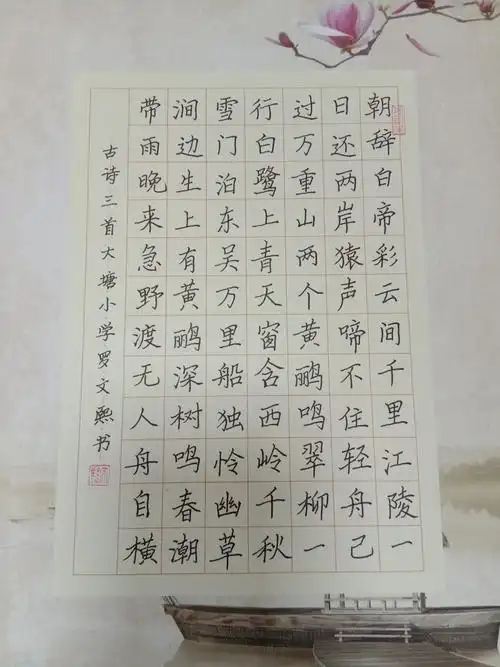 朝辞白帝彩云间千里江陵一
日还两岸猿声啼不住轻舟已
过万重山两个黄鹂鸣翠柳一
行白鹭上青天窗含西岭千秋
雪门泊东吴万里船独怜幽草
涧边生上有黄鹂深树鸣春潮
带雨晚来急野渡无人舟自横
古诗三首大塘小学罗文熙书